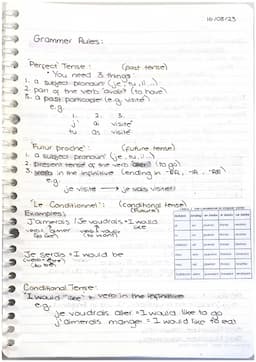 10/03/23
Grammer Rules:
Perfect Tense: (past tense)
• You need 3 things:
1. a subject pronoun (je, tu, il...)
2. part of the verb "avoir" (to have)
3. a past participle (e.g. visité)
e.g.
1. 2. 3.
j' ai visité
tu as visité
"Futur proche": (future tense)
1. a subject pronoun (je, tu, il...)
2. present tense of the verb "aller" (to go)
3. verb in the infinitive (ending in -ER, -IR, -RE)
e.g.
je visite → je vais visiter
"Le Conditionnel": (conditional tense)
Examples:
J'aimerais / Je voudrais = I would like
Je serais = I would be
Conditional Tense:
"I would like" + verb in the infinitive
e.g.
je voudrais aller = I would like to go
j'aimerais manger = I would like to eat